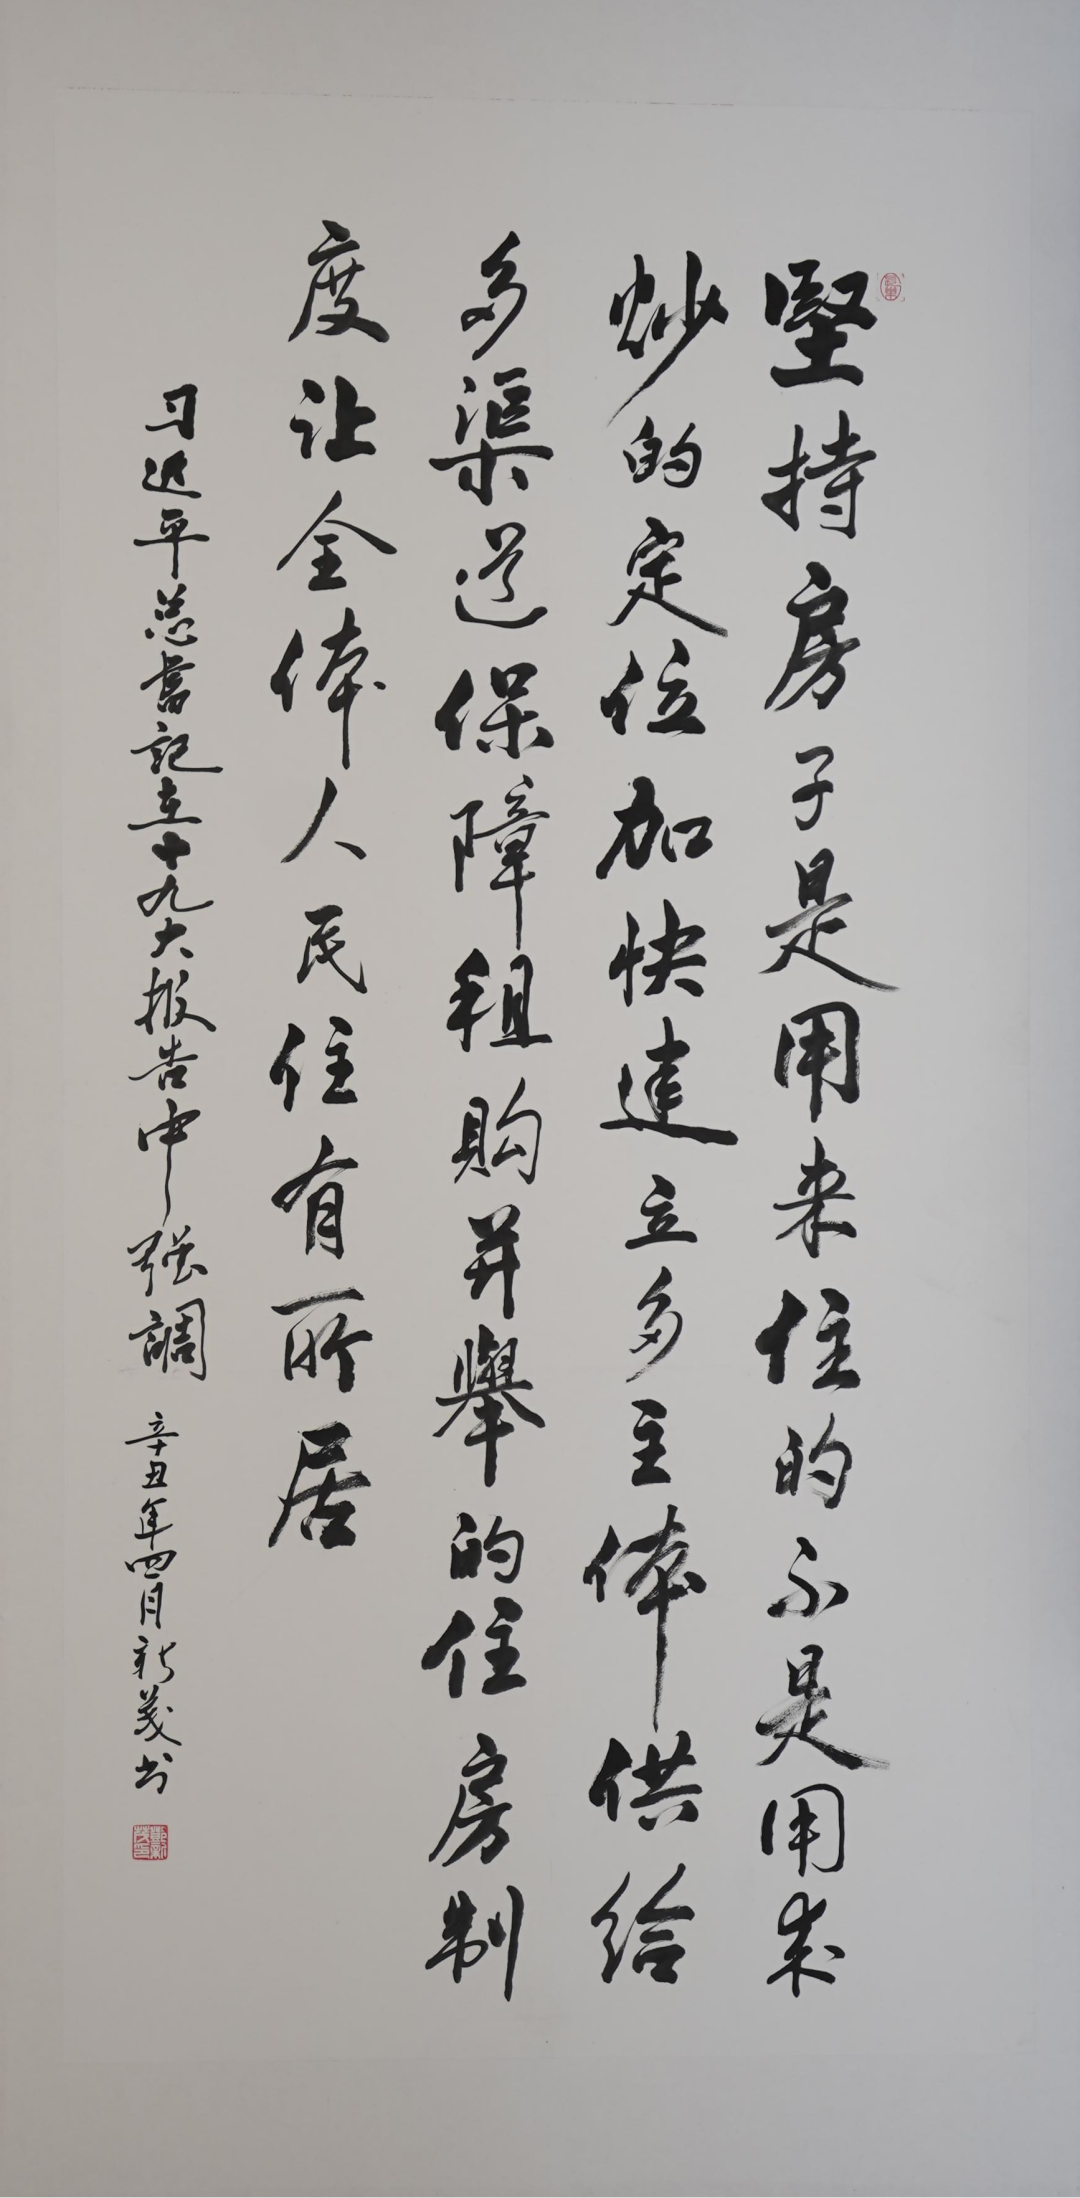 堅持房子是用来住的不是用来
炒的定位加快建立多主体供给
多渠道保障租购并舉的住房制
度让全体人民住有所居
习近平总書記在十九大报告中强調
辛丑年四月新茂书
鄭新茂印